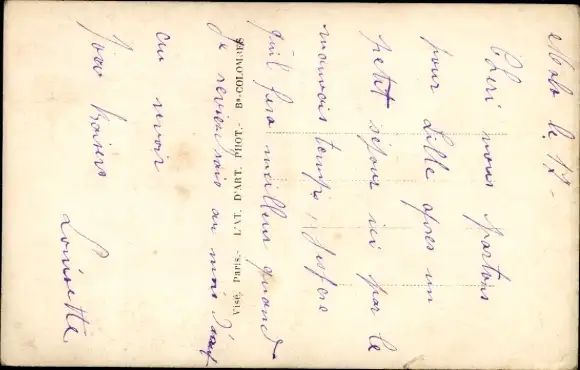 Malo le 17 -
Chéri nous partons
pour Lille apres un
petit séjour ici par le
mauvais temps, j'espère
qu'il fera meilleur quand
je reviendrais au mois d'aout
au revoir
Bons Baisers
Louisette
Visé, Paris. - L'AT. D'ART. PHOT. - Bs-COLOMBES